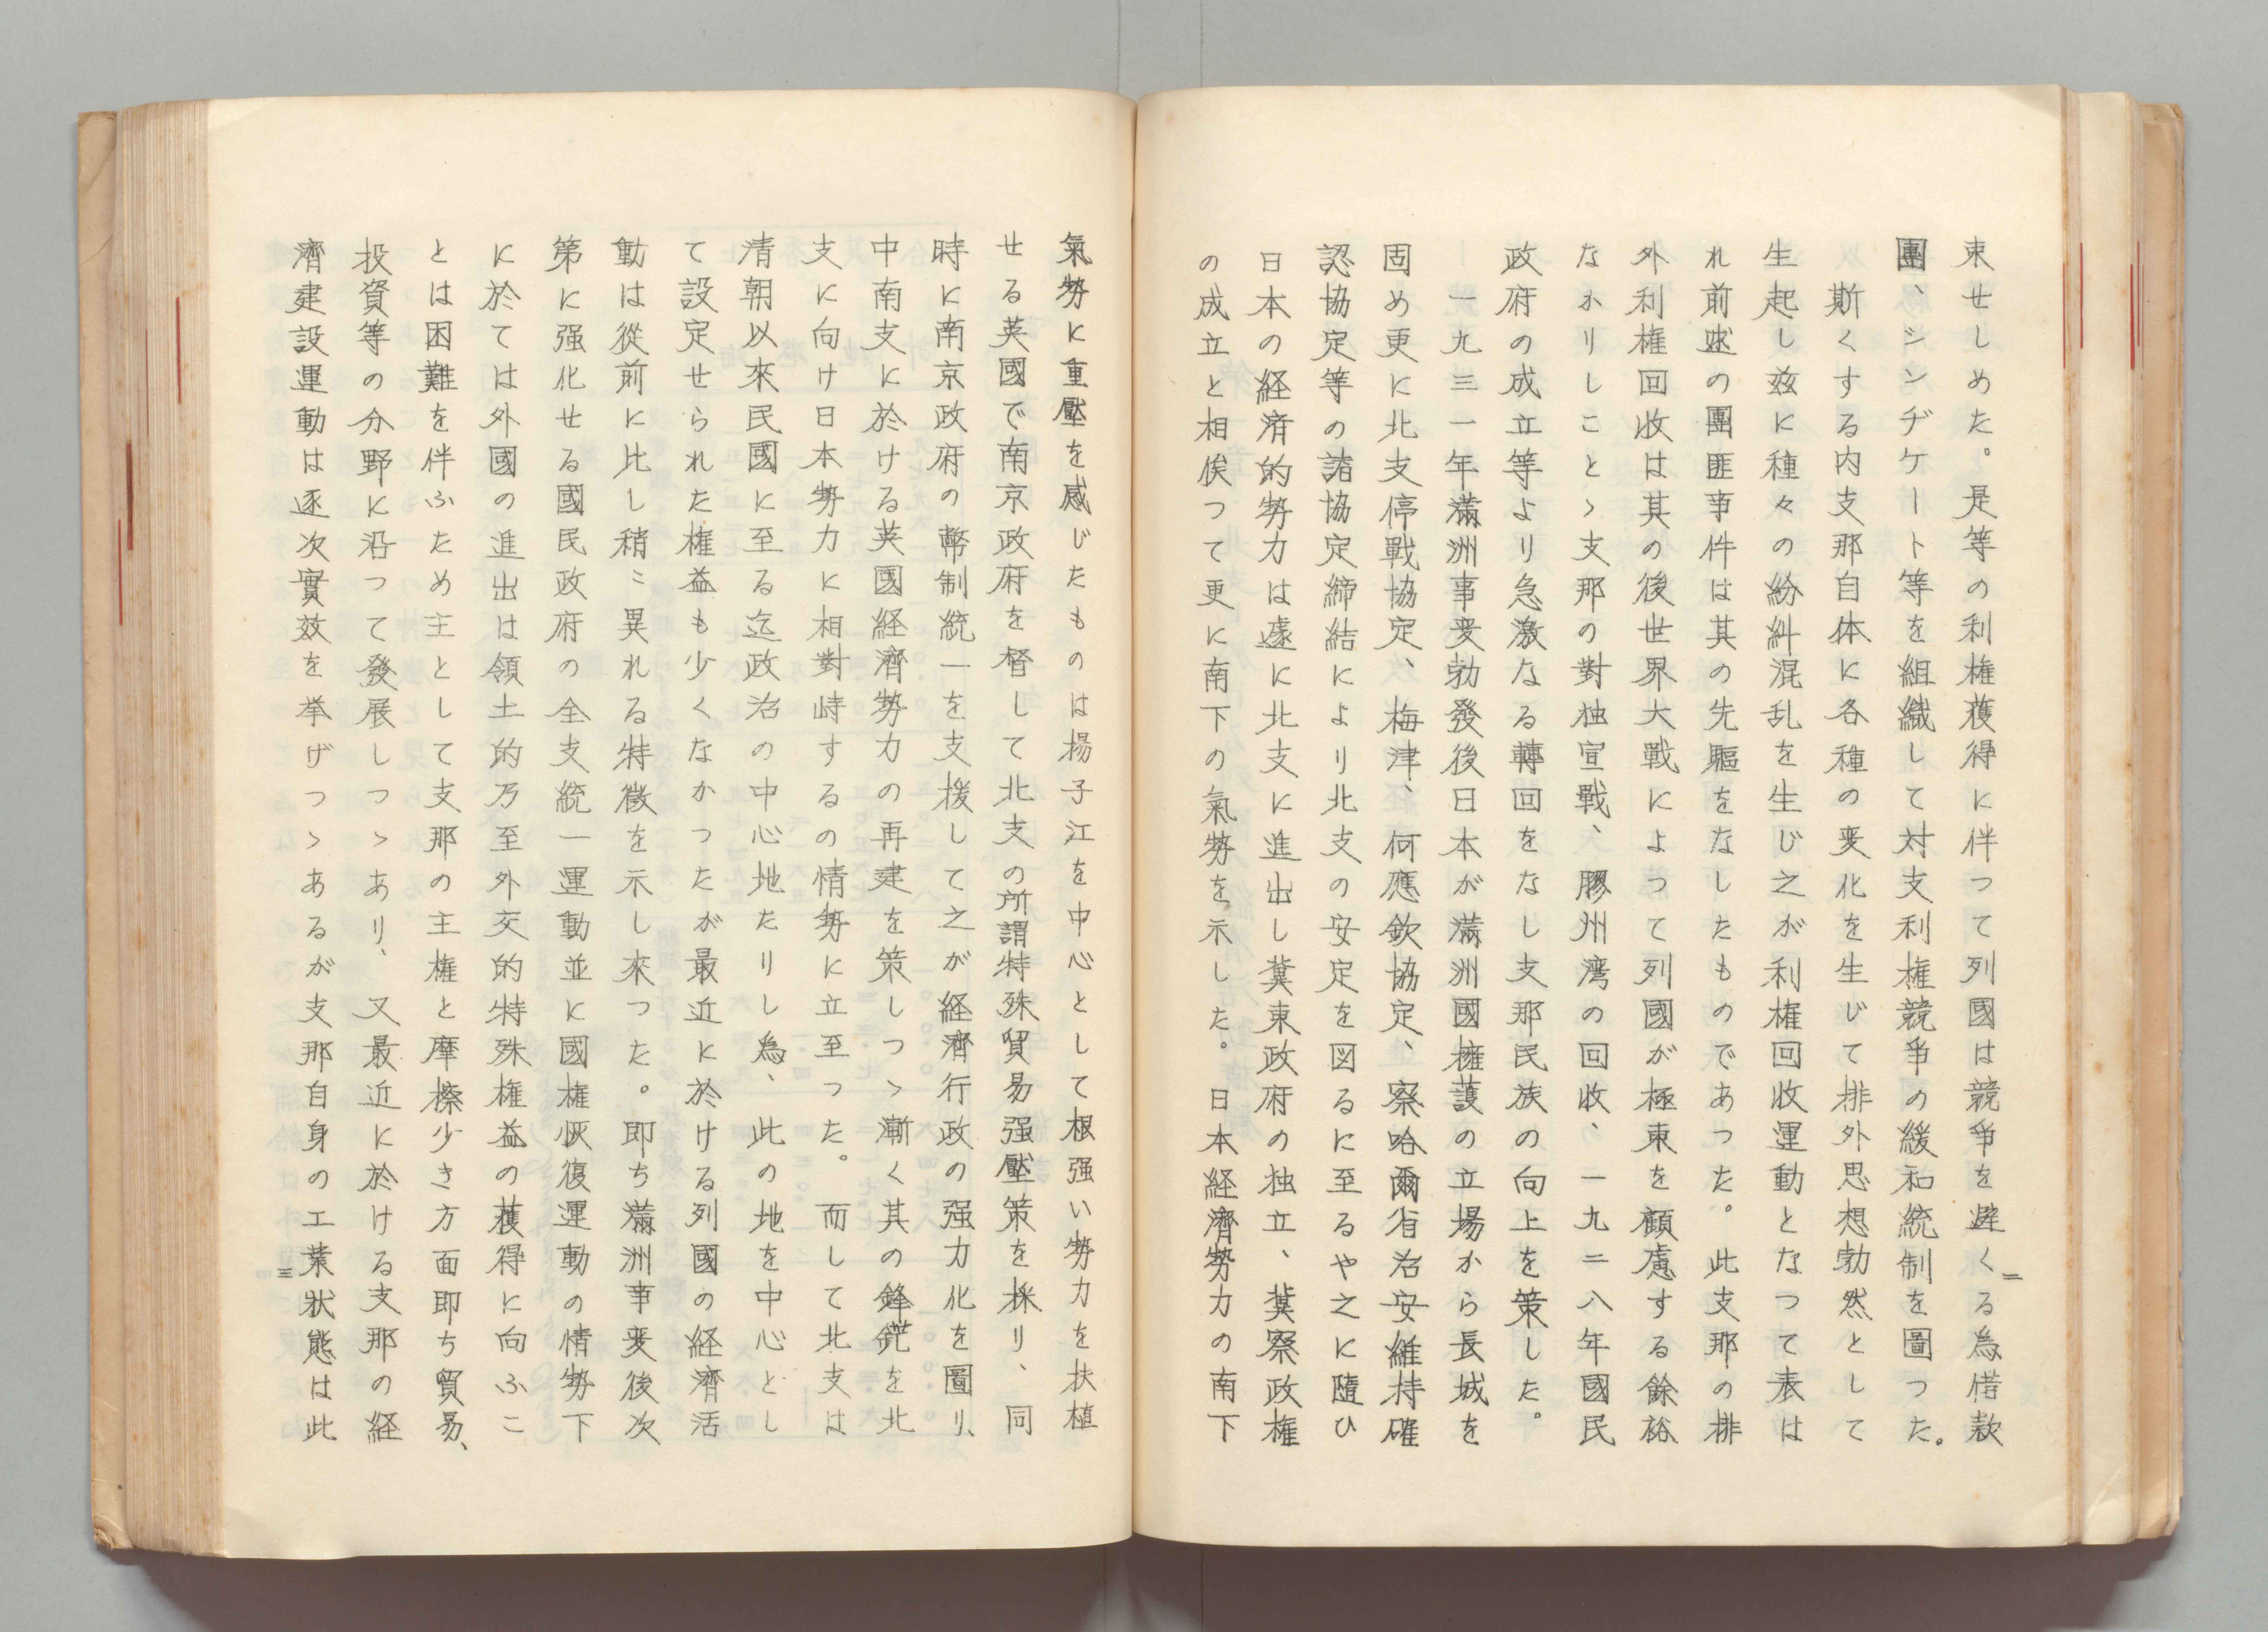 来せしめた。是等の利権獲得に伴つて列國は競争を避くる為借款
團、シンヂケート等を組織して対支利権競争の緩和統制を圖つた。
斯くする内支那自体に各種の変化を生じて排外思想勃然として
生起し玆に種々の紛糾混乱を生じ之が利権回收運動となつて表は
れ前述の團匪事件は其の先驅をなしたものであつた。此支那の排
外利権回收は其の後世界大戰によつて列國が極東を顧慮する餘裕
なかりしことゝ支那の對独宣戰、膠州湾の回收、一九二八年國民
政府の成立等より急激なる轉回をなし支那民族の向上を策した。
一九三一年滿洲事変勃發後日本が滿洲國擁護の立場から長城を
固め更に北支停戰協定、梅津、何應欽協定、察哈爾省治安維持確
認協定等の諸協定締結により北支の安定を図るに至るや之に隨ひ
日本の経済的勢力は遽に北支に進出し冀東政府の独立、冀察政権
の成立と相俟つて更に南下の氣勢を示した。日本経濟勢力の南下
二
氣勢に重壓を感じたものは揚子江を中心として根强い勢力を扶植
せる英國で南京政府を督して北支の所謂特殊貿易强壓策を採り、同
時に南京政府の幣制統一を支援して之が経濟行政の强力化を圖り、
中南支に於ける英國経濟勢力の再建を策しつゝ漸く其の鋒鋩を北
支に向け日本勢力に相對峙するの情勢に立至つた。而して北支は
清朝以來民國に至る迄政治の中心地たりし為、此の地を中心とし
て設定せられた権益も少くなかつたが最近に於ける列國の経濟活
動は從前に比し稍〻異れる特徴を示し來つた。即ち滿洲事変後次
第に强化せる國民政府の全支統一運動並に國権恢復運動の情勢下
に於ては外國の進出は領土的乃至外交的特殊権益の獲得に向ふこ
とは困難を伴ふため主として支那の主権と摩擦少き方面即ち貿易、
投資等の分野に沿つて發展しつゝあり、又最近に於ける支那の経
濟建設運動は逐次實效を挙げつゝあるが支那自身の工業狀態は此
三